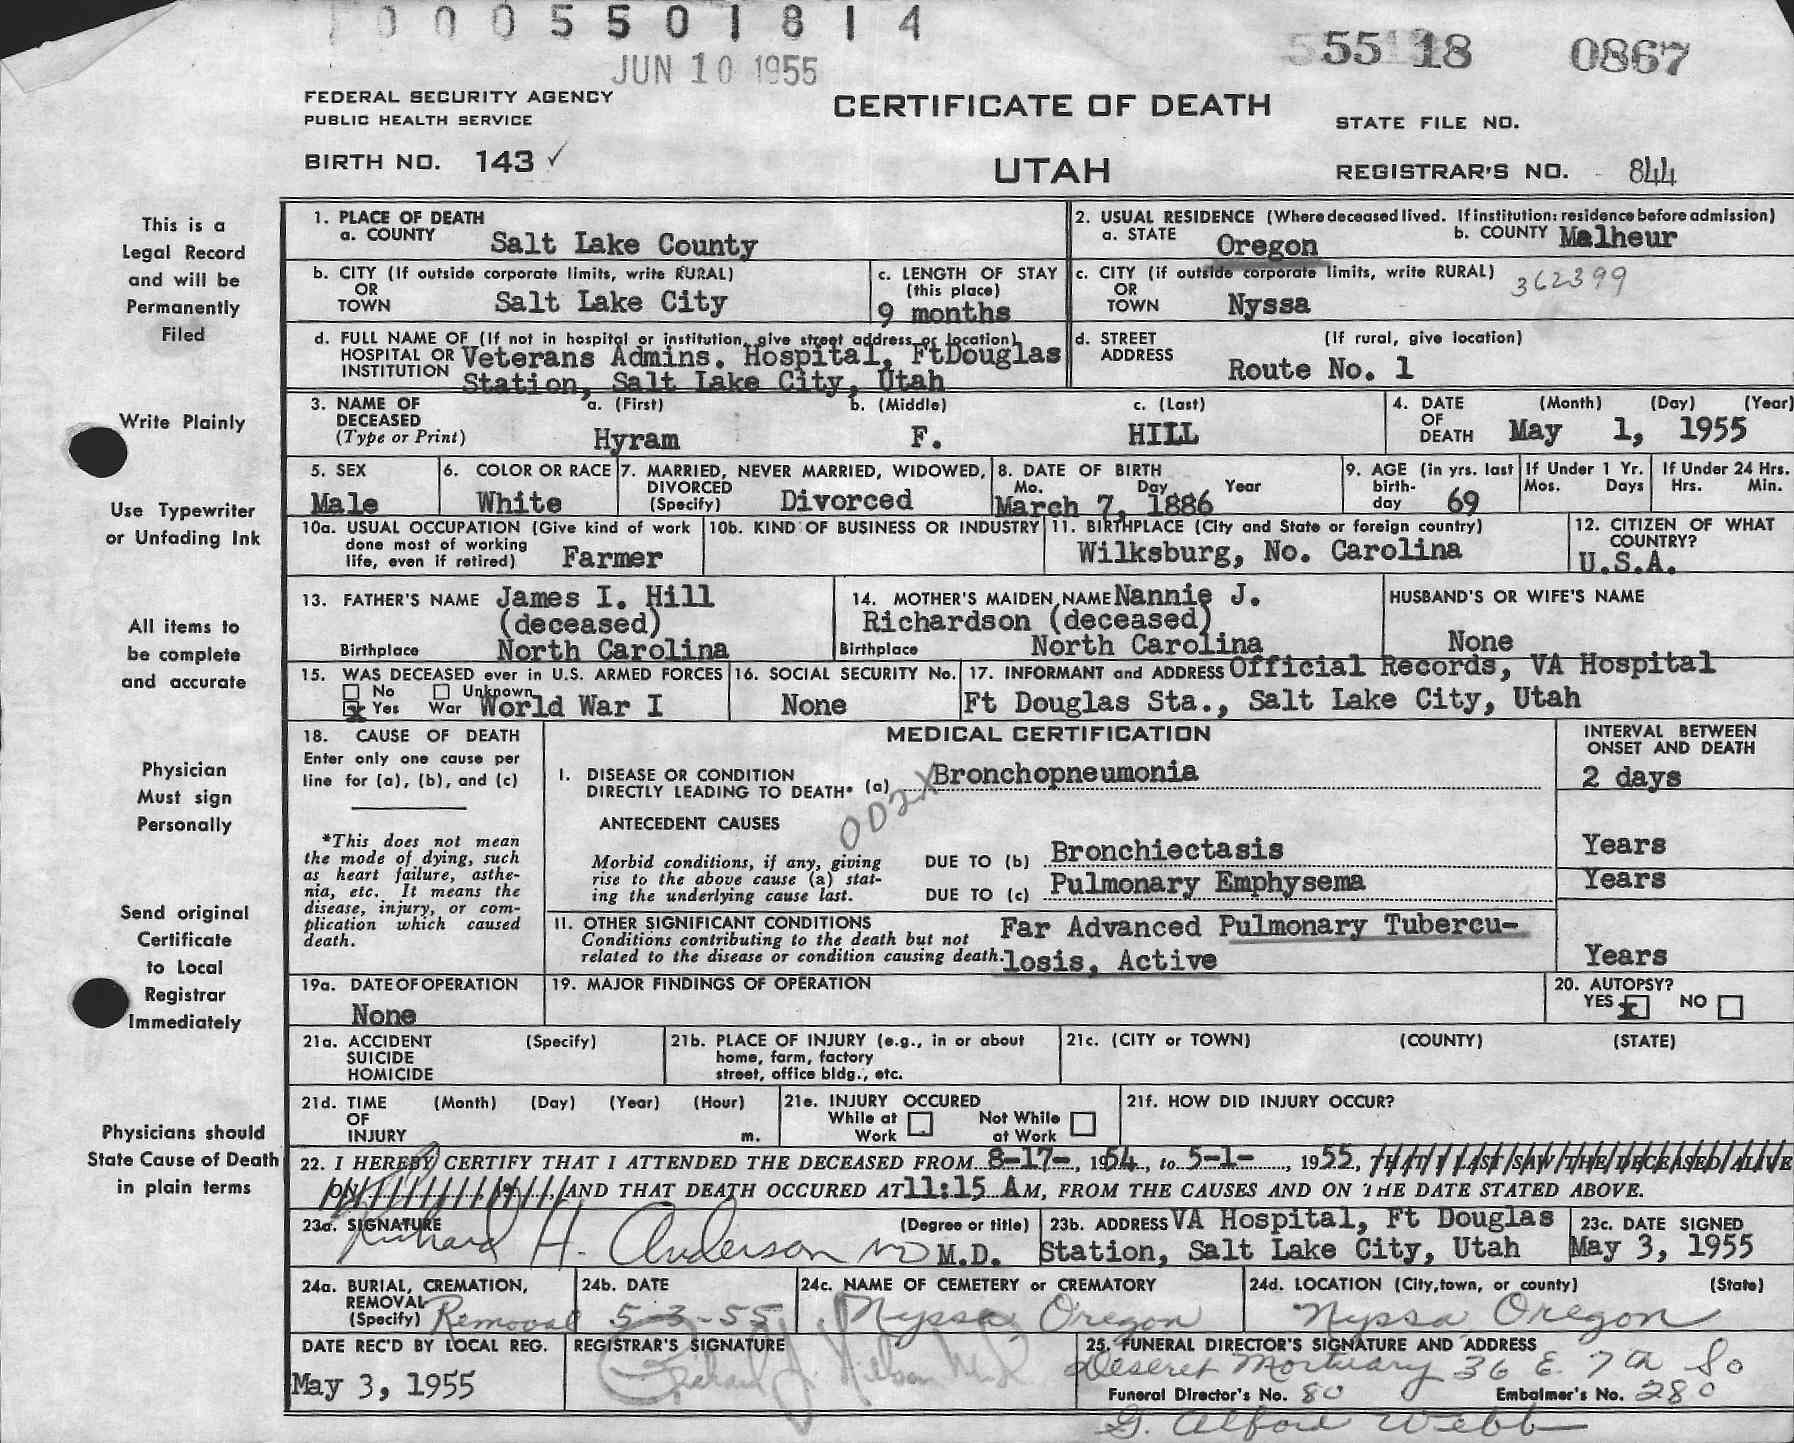 0005501814
JUN 10 1955
55 18 0867
FEDERAL SECURITY AGENCY
PUBLIC HEALTH SERVICE
CERTIFICATE OF DEATH
STATE FILE NO.
BIRTH NO. 143 ✓
UTAH
REGISTRAR'S NO. 844
This is a
Legal Record
and will be
Permanently
Filed
Write Plainly
Use Typewriter
or Unfading Ink
All items to
be complete
and accurate
Physician
Must sign
Personally
Send original
Certificate
to Local
Registrar
Immediately
Physicians should
State Cause of Death
in plain terms
1. PLACE OF DEATH
a. COUNTY Salt Lake County
2. USUAL RESIDENCE (Where deceased lived. If institution: residence before admission)
a. STATE Oregon b. COUNTY Malheur
b. CITY (If outside corporate limits, write RURAL)
OR
TOWN Salt Lake City
c. LENGTH OF STAY
(this place)
9 months
c. CITY (if outside corporate limits, write RURAL) 362399
OR
TOWN Nyssa
d. FULL NAME OF (If not in hospital or institution, give street address or location)
HOSPITAL OR Veterans Admins. Hospital, FtDouglas
INSTITUTION Station, Salt Lake City, Utah
d. STREET (If rural, give location)
ADDRESS
Route No. 1
3. NAME OF a. (First) b. (Middle) c. (Last)
DECEASED
(Type or Print) Hyram F. HILL
4. DATE (Month) (Day) (Year)
OF
DEATH May 1, 1955
5. SEX
Male
6. COLOR OR RACE
White
7. MARRIED, NEVER MARRIED, WIDOWED,
DIVORCED
(Specify) Divorced
8. DATE OF BIRTH
Mo. Day Year
March 7, 1886
9. AGE (in yrs. last
birth-
day 69
If Under 1 Yr.
Mos. Days
If Under 24 Hrs.
Hrs. Min.
10a. USUAL OCCUPATION (Give kind of work
done most of working
life, even if retired) Farmer
10b. KIND OF BUSINESS OR INDUSTRY
11. BIRTHPLACE (City and State or foreign country)
Wilksburg, No. Carolina
12. CITIZEN OF WHAT
COUNTRY?
U.S.A.
13. FATHER'S NAME James I. Hill
(deceased)
Birthplace North Carolina
14. MOTHER'S MAIDEN NAME Nannie J.
Richardson (deceased)
Birthplace North Carolina
HUSBAND'S OR WIFE'S NAME
None
15. WAS DECEASED ever in U.S. ARMED FORCES
No Unknown
x Yes War World War I
16. SOCIAL SECURITY No.
None
17. INFORMANT and ADDRESS Official Records, VA Hospital
Ft Douglas Sta., Salt Lake City, Utah
18. CAUSE OF DEATH
Enter only one cause per
line for (a), (b), and (c)
*This does not mean
the mode of dying, such
as heart failure, asthe-
nia, etc. It means the
disease, injury, or com-
plication which caused
death.
MEDICAL CERTIFICATION
INTERVAL BETWEEN
ONSET AND DEATH
I. DISEASE OR CONDITION
DIRECTLY LEADING TO DEATH* (a) Bronchopneumonia 2 days
002X
ANTECEDENT CAUSES
Morbid conditions, if any, giving
rise to the above cause (a) stat-
ing the underlying cause last.
DUE TO (b) Bronchiectasis Years
DUE TO (c) Pulmonary Emphysema Years
II. OTHER SIGNIFICANT CONDITIONS
Conditions contributing to the death but not
related to the disease or condition causing death.
Far Advanced Pulmonary Tubercu-
losis, Active Years
19a. DATE OF OPERATION
None
19. MAJOR FINDINGS OF OPERATION
20. AUTOPSY?
YES x NO
21a. ACCIDENT (Specify)
SUICIDE
HOMICIDE
21b. PLACE OF INJURY (e.g., in or about
home, farm, factory
street, office bldg., etc.
21c. (CITY or TOWN) (COUNTY) (STATE)
21d. TIME (Month) (Day) (Year) (Hour)
OF
INJURY m.
21e. INJURY OCCURED
While at Work Not While at Work
21f. HOW DID INJURY OCCUR?
22. I HEREBY CERTIFY THAT I ATTENDED THE DECEASED FROM 8-17-, 1954, to 5-1-, 1955, THAT I LAST SAW THE DECEASED ALIVE
ON , 19 , AND THAT DEATH OCCURED AT 11:15 AM, FROM THE CAUSES AND ON THE DATE STATED ABOVE.
23a. SIGNATURE (Degree or title)
Richard H. Anderson MD M.D.
23b. ADDRESS VA Hospital, Ft Douglas
Station, Salt Lake City, Utah
23c. DATE SIGNED
May 3, 1955
24a. BURIAL, CREMATION,
REMOVAL
(Specify) Removal
24b. DATE
5-3-55
24c. NAME OF CEMETERY or CREMATORY
Nyssa Oregon
24d. LOCATION (City, town, or county) (State)
Nyssa Oregon
DATE REC'D BY LOCAL REG.
May 3, 1955
REGISTRAR'S SIGNATURE
25. FUNERAL DIRECTOR'S SIGNATURE AND ADDRESS
Deseret Mortuary 36 E. 7th So
Funeral Director's No. 80 Embalmer's No. 280
G. Alford Webb